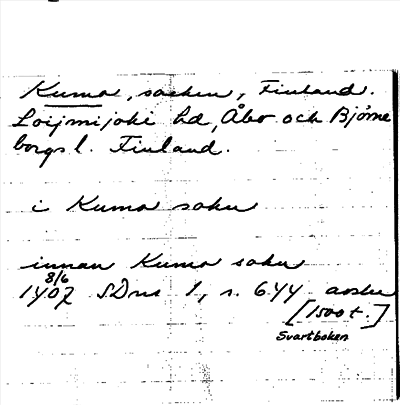 Kumo, socken, Finland.
Loijmijoki hd, Åbo och Björne
borgs l. Finland.
i Kumo sokn
innan Kumo sokn
8/6
1407 SDns 1, s. 644 avskr
[1500 t.]
Svartboken